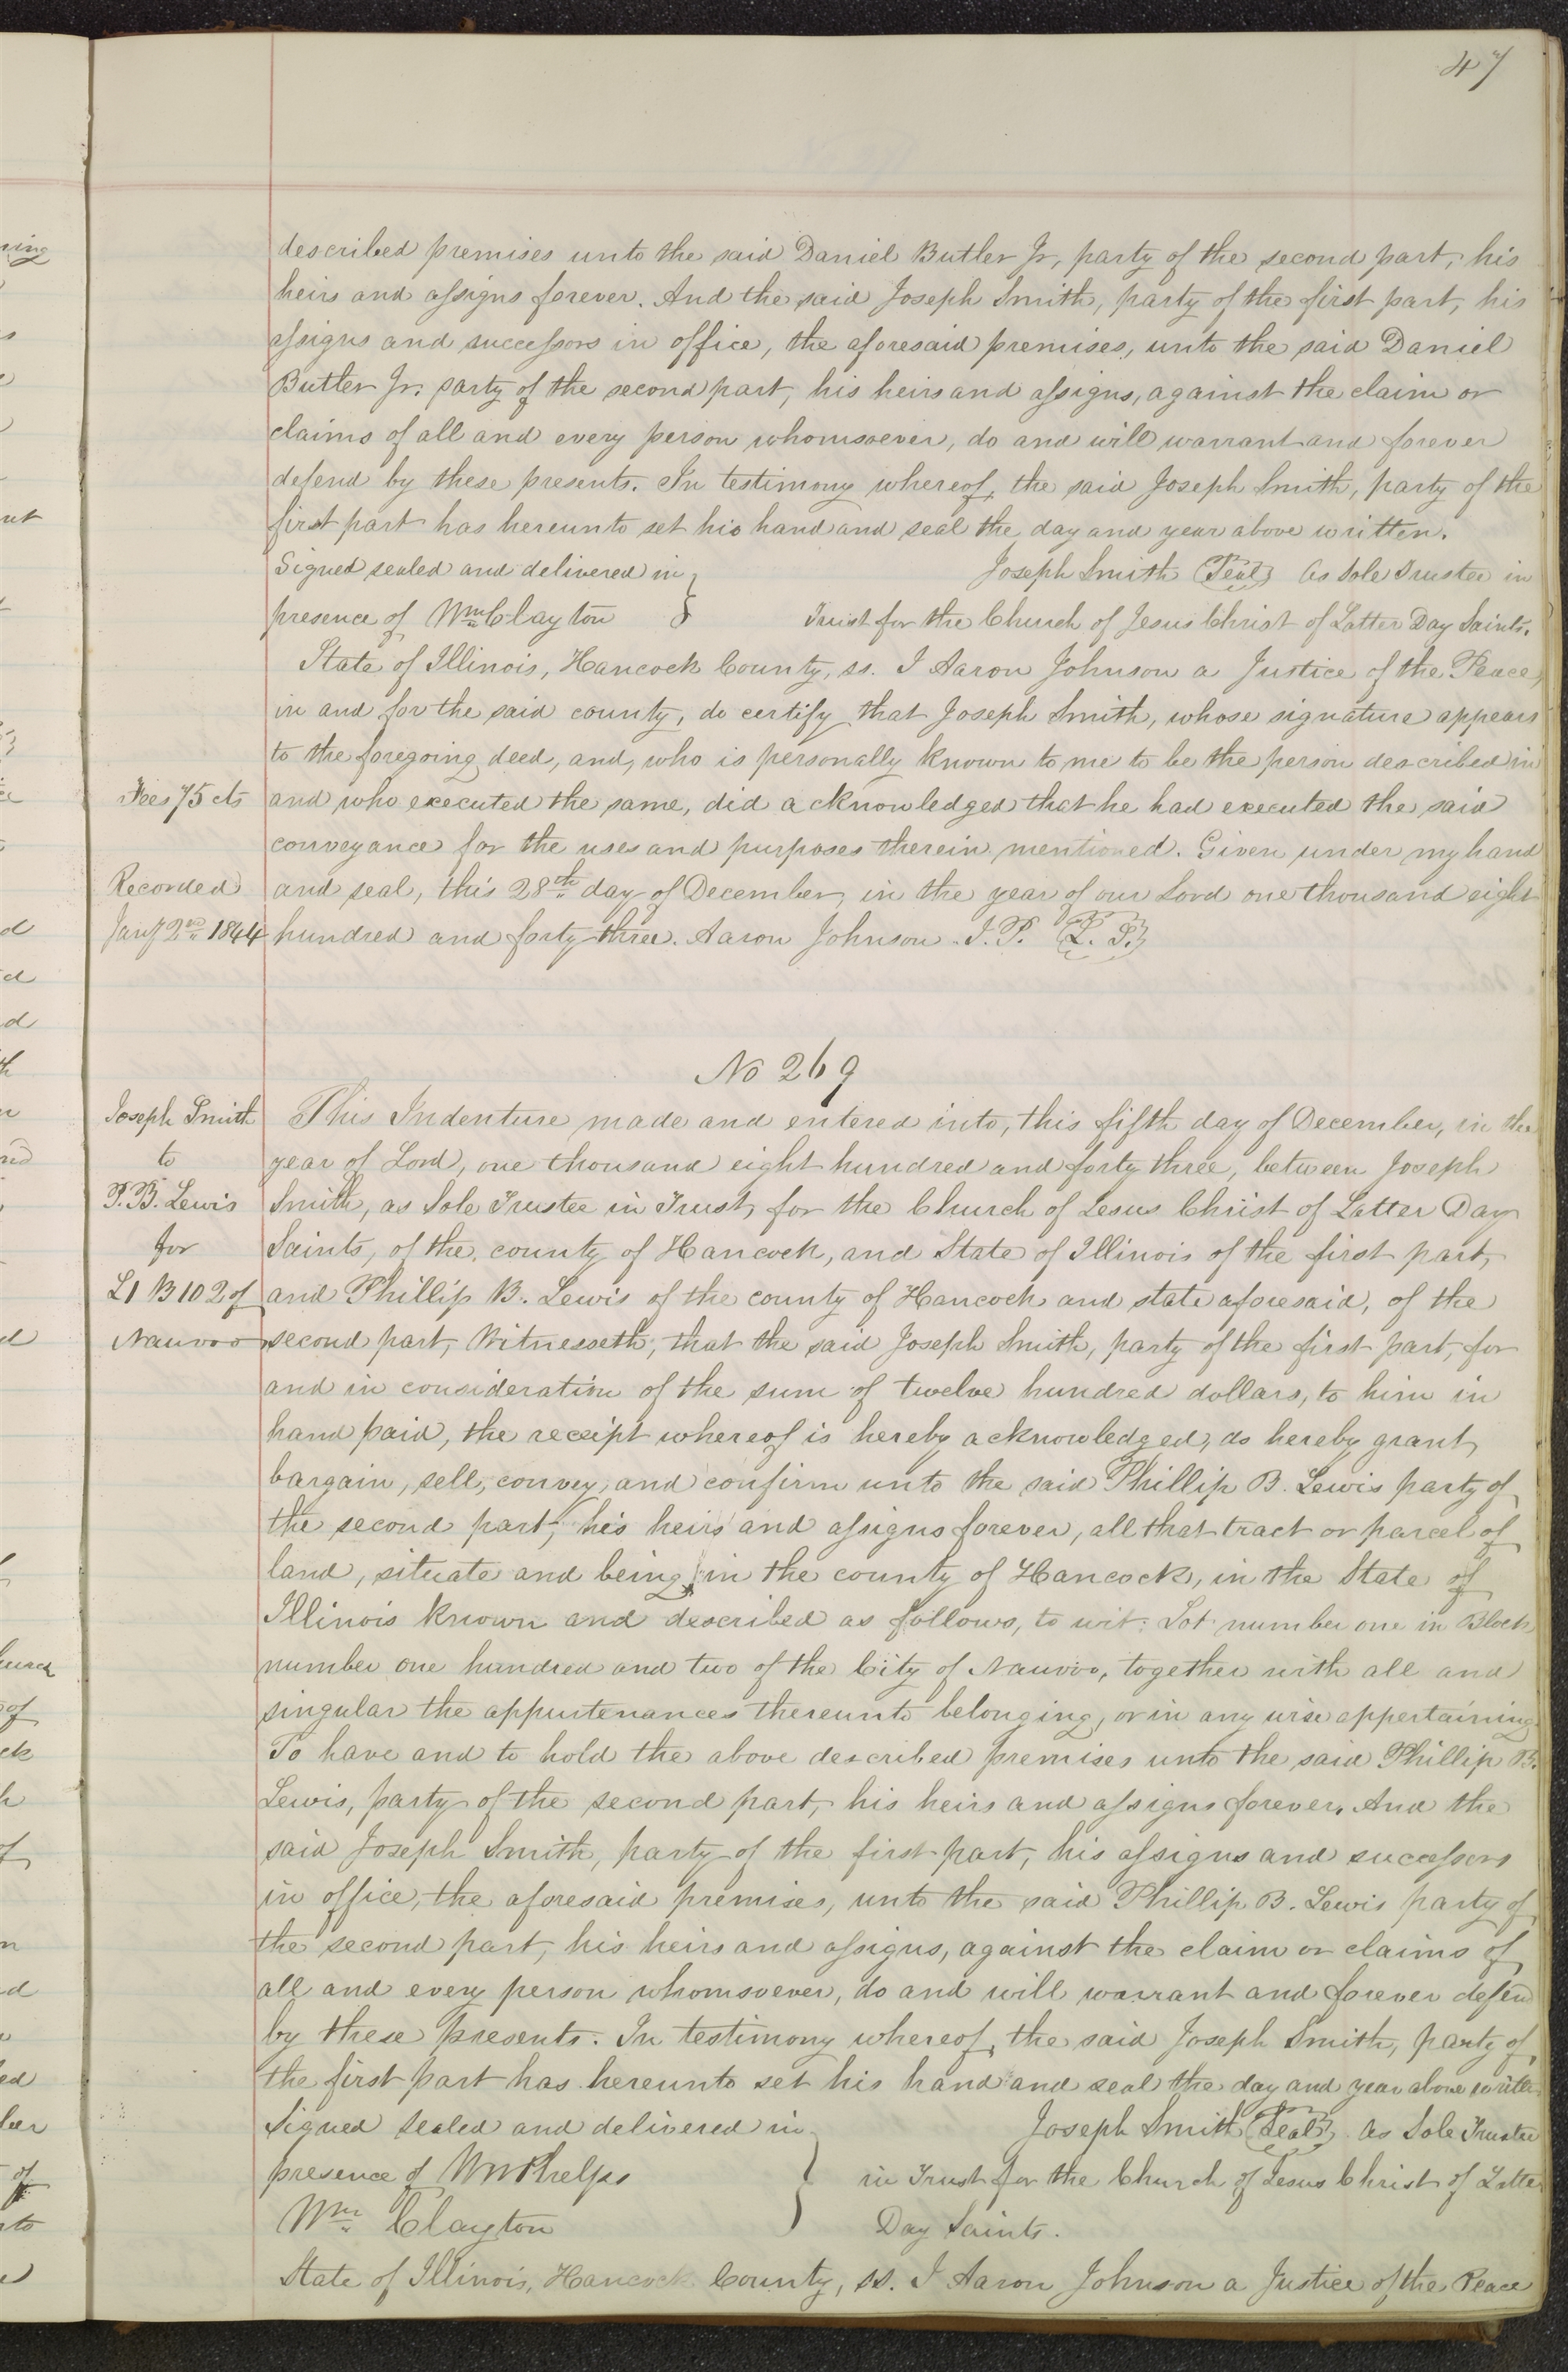 47
described premises unto the said Daniel Butler Jr, party of the second part, his
heirs and assigns forever. And the said Joseph Smith, party of the first part, his
assigns and successors in office, the aforesaid premises, unto the said Daniel
Butler Jr. party of the second part, his heirs and assigns, against the claim or
claims of all and every person whomsoever, do and will warrant and forever
defend by these presents. In testimony whereof, the said Joseph Smith, party of the
first part has hereunto set his hand and seal the day and year above written.
Signed sealed and delivered in } Joseph Smith (Seal) As Sole Trustee in
presence of Wm Clayton } Trust for the Church of Jesus Christ of Latter Day Saints.
State of Illinois, Hancock County, ss. I Aaron Johnson a Justice of the Peace,
in and for the said county, do certify that Joseph Smith, whose signature appears
to the foregoing deed, and, who is personally known to me to be the person described in
Fees 75 cts and who executed the same, did acknowledged that he had executed the said
conveyance for the uses and purposes therein mentioned. Given under my hand
Recorded and seal, this 28th day of December, in the year of our Lord one thousand eight
Jany 2nd 1844 hundred and forty-three. Aaron Johnson. J.P. (L. S.)
No 269
Joseph Smith This Indenture made and entered into, this fifth day of December, in the
to year of Lord, one thousand eight hundred and forty three, between Joseph
P. B. Lewis Smith, as Sole Trustee in Trust, for the Church of Jesus Christ of Latter Day
for Saints, of the county of Hancock, and State of Illinois of the first part,
L1 B102 of and Phillip B. Lewis of the county of Hancock and state aforesaid, of the
Nauvoo second part, Witnesseth; that the said Joseph Smith, party of the first part, for
and in consideration of the sum of twelve hundred dollars, to him in
hand paid, the receipt whereof is hereby acknowledged, do hereby grant,
bargain, sell, convey, and confirm unto the said Phillip B. Lewis party of
the second part, his heirs and assigns forever, all that tract or parcel of
land, situate and being, in the county of Hancock, in the State of
Illinois known and described as follows, to wit: Lot number one in Block
number one hundred and two of the City of Nauvoo, together with all and
singular the appurtenances thereunto belonging, or in any wise appertaining
To have and to hold the above described premises unto the said Phillip B.
Lewis, party of the second part, his heirs and assigns forever. And the
said Joseph Smith, party of the first part, his assigns and successors
in office, the aforesaid premises, unto the said Phillip B. Lewis party of
the second part, his heirs and assigns, against the claim or claims of
all and every person whomsoever, do and will warrant and forever defend
by these presents. In testimony whereof, the said Joseph Smith, party of
the first part has hereunto set his hand and seal the day and year above written
Signed sealed and delivered in } Joseph Smith (Seal) As Sole Trustee
presence of Wm Phelps } in Trust for the Church of Jesus Christ of Latter
Wm Clayton } Day Saints.
State of Illinois, Hancock County, ss. I Aaron Johnson a Justice of the Peace